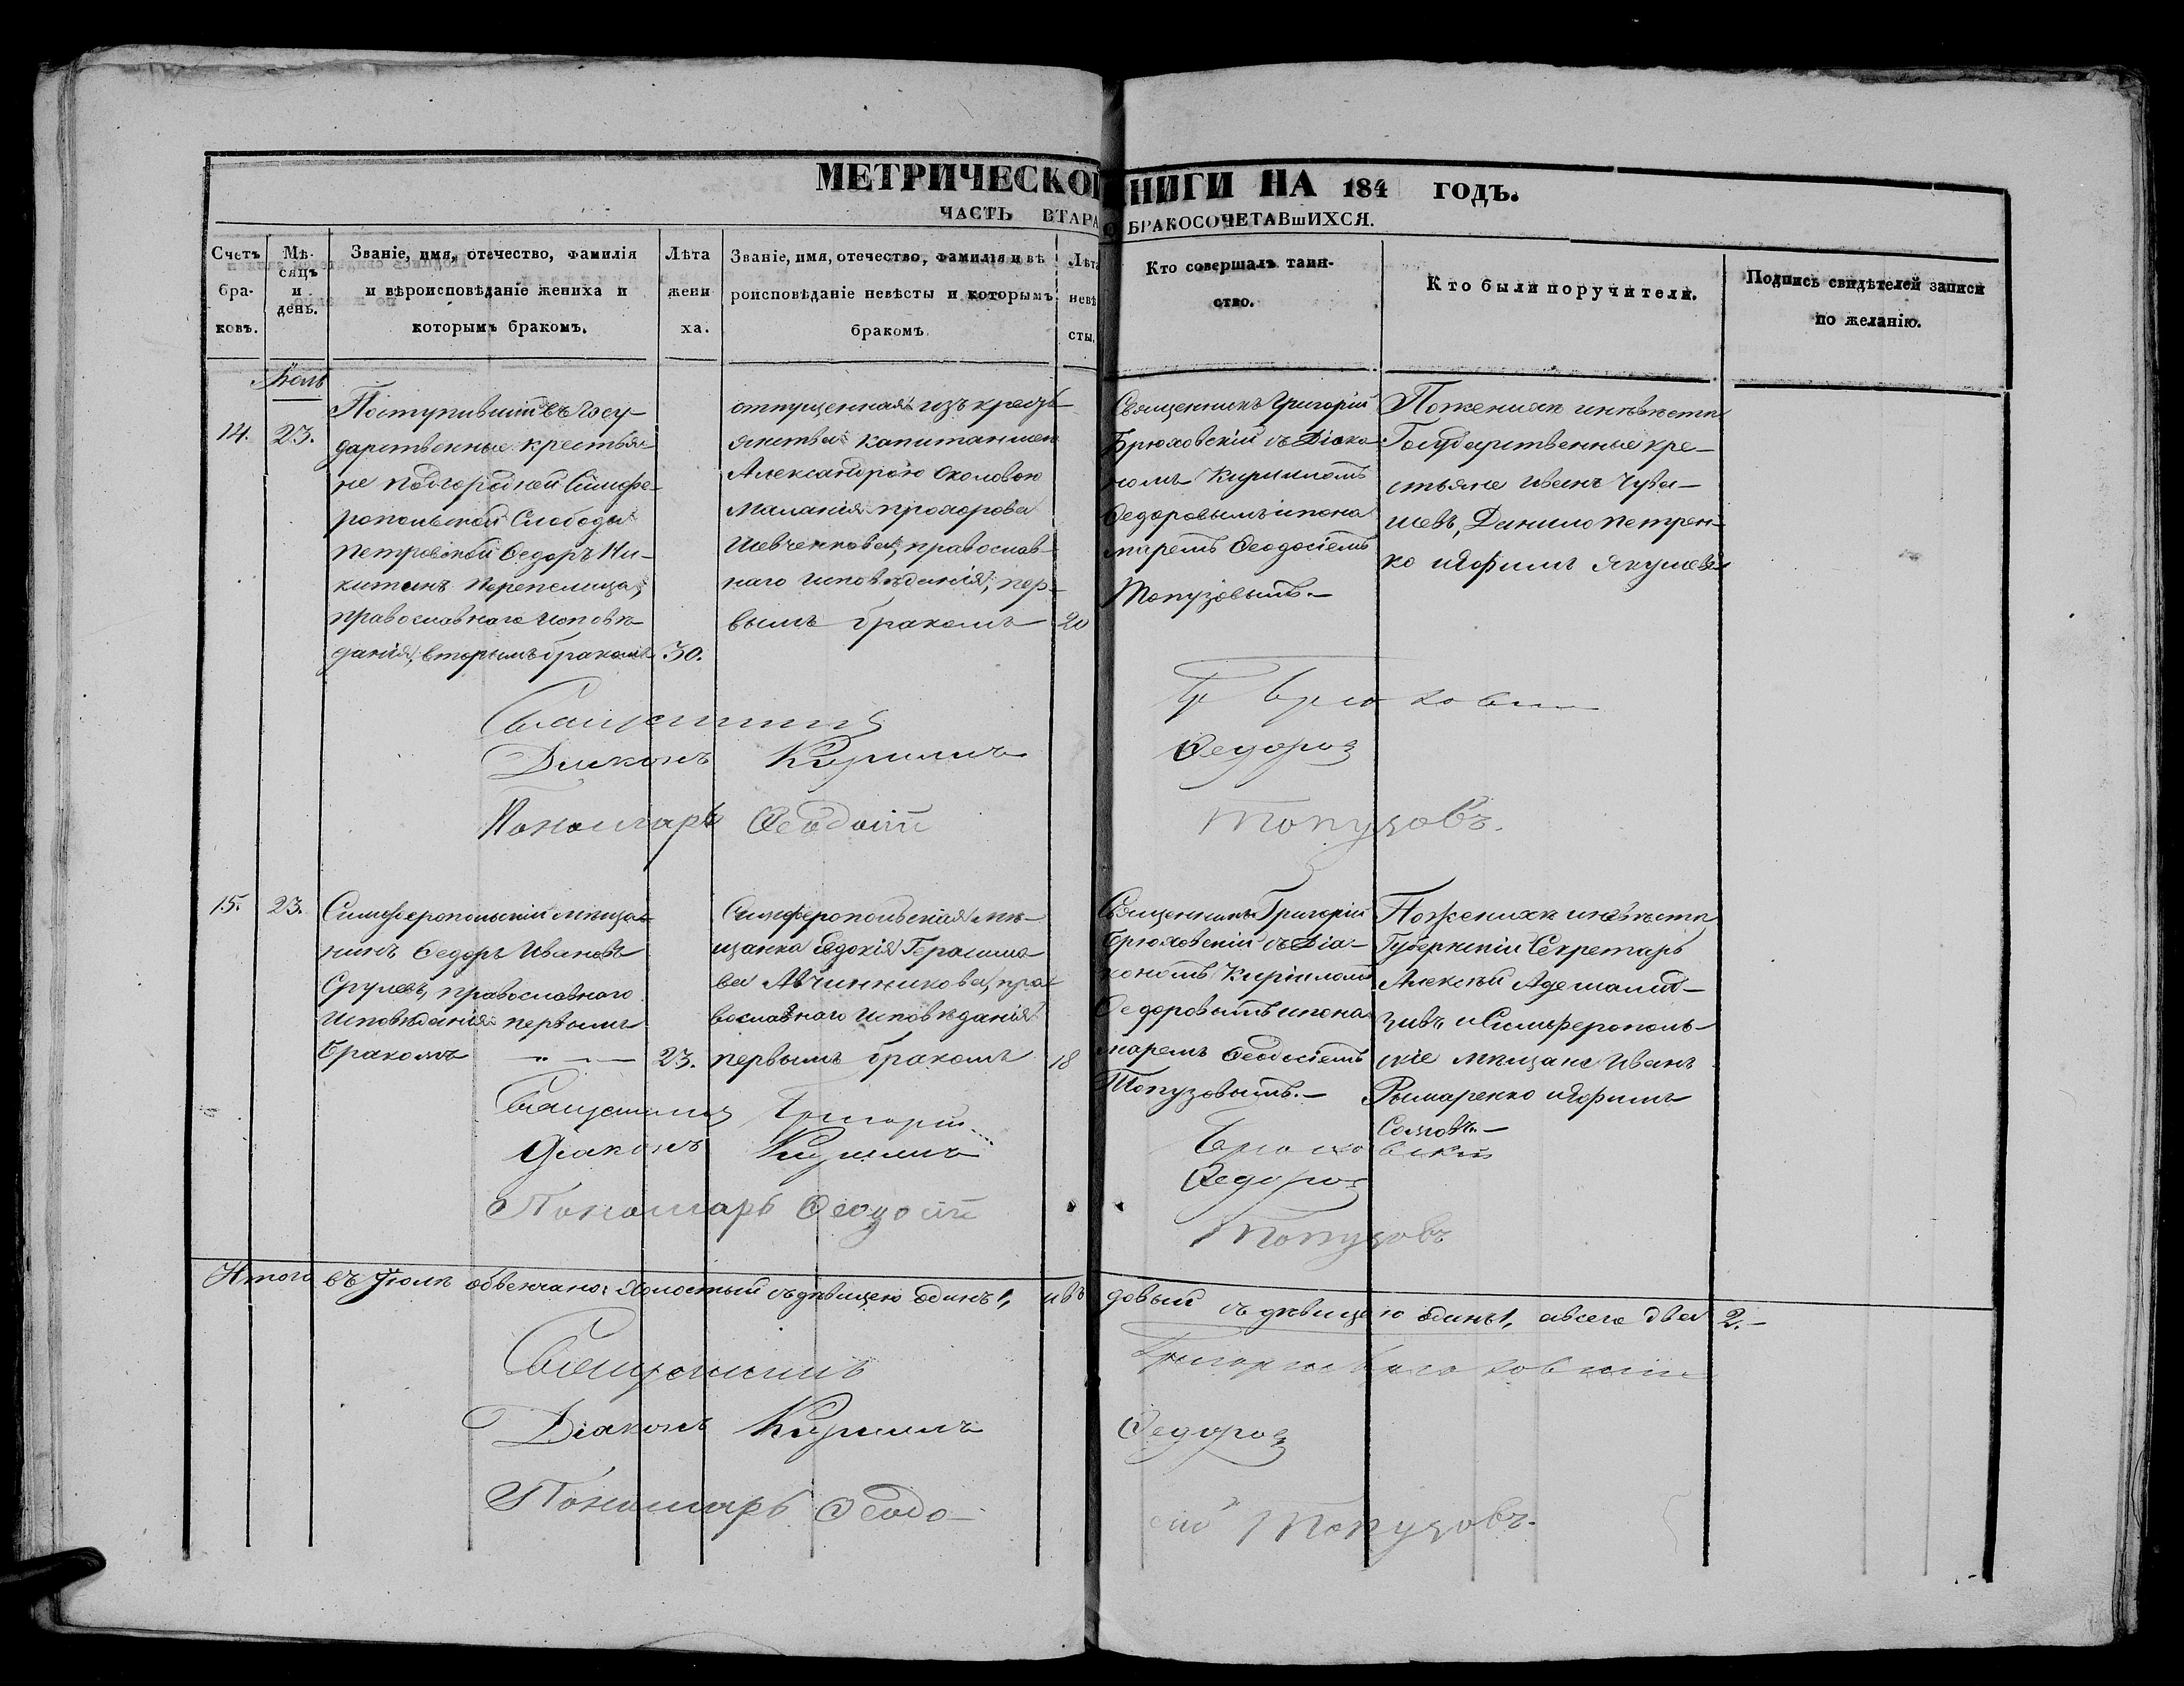 МЕТРИЧЕСКОЙ КНИГИ НА 184 ГОДЪ.
ЧАСТЬ ВТАРА О БРАКОСОЧЕТАВшИХСЯ.
Счетъ бра-ковъ.
Мѣ-сяцъ и день.
Званіе, имя, отечество, фамилія
и вѣроисповѣданіе жениха и
которымъ бракомъ.
Лѣта
жени
ха.
Званіе, имя, отечество, фамилія и вѣ
роисповѣданіе невѣсты и которымъ
бракомъ
Лѣта
невѣ
сты.
Кто совершалъ таин-
ство.
Кто были поручители.
Подпись свидѣтелей записи
по желанію.
Іюль
14. 23.
Поступившій въ Госу-
дарственные крестья-
не подгородней Симфе-
ропольской Слободы
Петровской Ѳедоръ Ни-
китинъ Перепелица,
православнаго исповѣ-
данія, вторымъ бракомъ
30.
отпущенная изъ кресть-
янства капитаншею
Александрою
Маланія Прохорова
Шевченкова, православ-
наго исповѣданія, пер-
вымъ бракомъ
20
Священникъ Григорій
Брюховскій съ Діако-
номъ Кирилломъ
Ѳедоровымъ и поно-
маремъ Ѳеодосіемъ
Топузовымъ.-
По женихѣ и невѣстѣ
Государственные кре-
стьяне Иванъ Чува-
шевъ, Данило Петрен-
ко и Яфимъ
Священникъ
Г Брюховскій
Діаконъ Кириллъ Ѳедоровъ
Пономарь Ѳеодосій Топузовъ.
15. 23.
Симферопольскій мѣща-
нинъ Ѳедоръ Ивановъ
православнаго
исповѣданія первымъ
бракомъ
23.
Симферопольская мѣ-
щанка Евдокія Герасимо-
ва Авчинникова, пра-
вославнаго исповѣданія
первымъ бракомъ
18
Священникъ Григорій
Брюховскій съ Діа-
кономъ Кирилломъ
Ѳедоровымъ и поно-
маремъ Ѳеодосіемъ
Топузовымъ.-
По женихѣ и невѣстѣ
Губернскій Секретарь
Алексѣй
и Симферополь-
скіе мѣщане Иванъ
Рымаренко и Яфимъ
Священникъ Григорій Брюховскій
Діаконъ Кириллъ Ѳедоровъ
Пономарь Ѳеодосій Топузовъ
Итого въ Іюлѣ обвенчано: Холостый съ дѣвицею одинъ 1, и вдовый съ дѣвицею одинъ 1, а всего два 2.-
Священникъ Григорій Брюховскій
Діаконъ Кириллъ Ѳедоровъ
Пономарь Ѳеодо-сій Топузовъ.